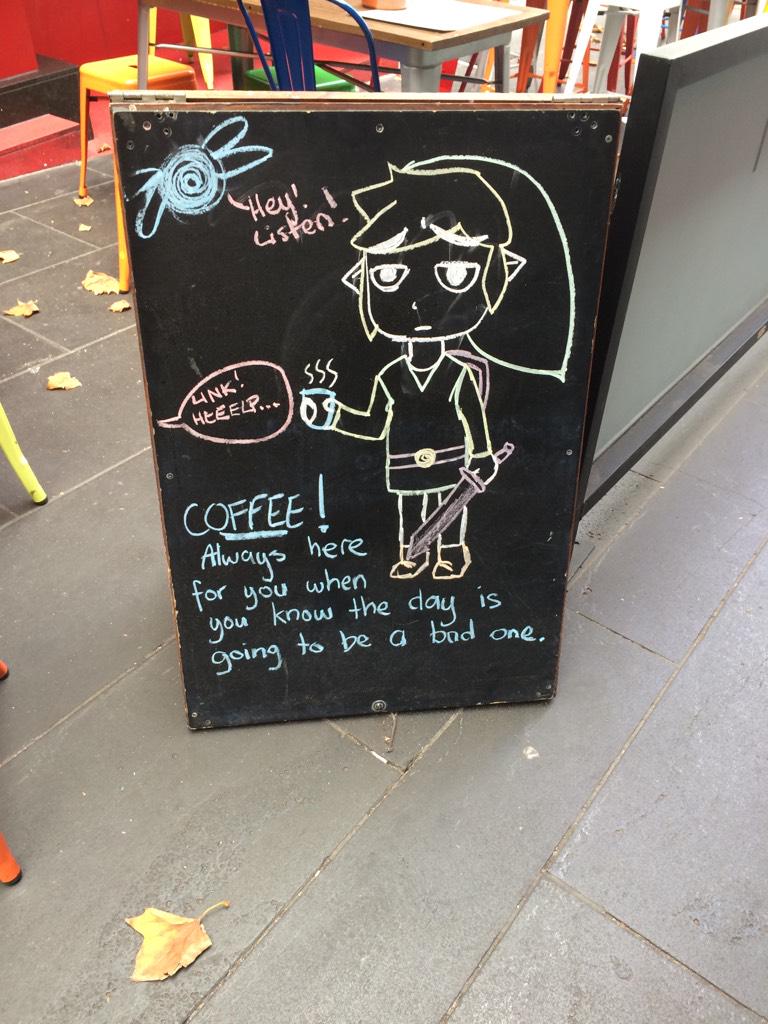 Hey!
Listen!
LINK!
HEEELP...
COFFEE!
Always here
for you when
you know the day is
going to be a bad one.